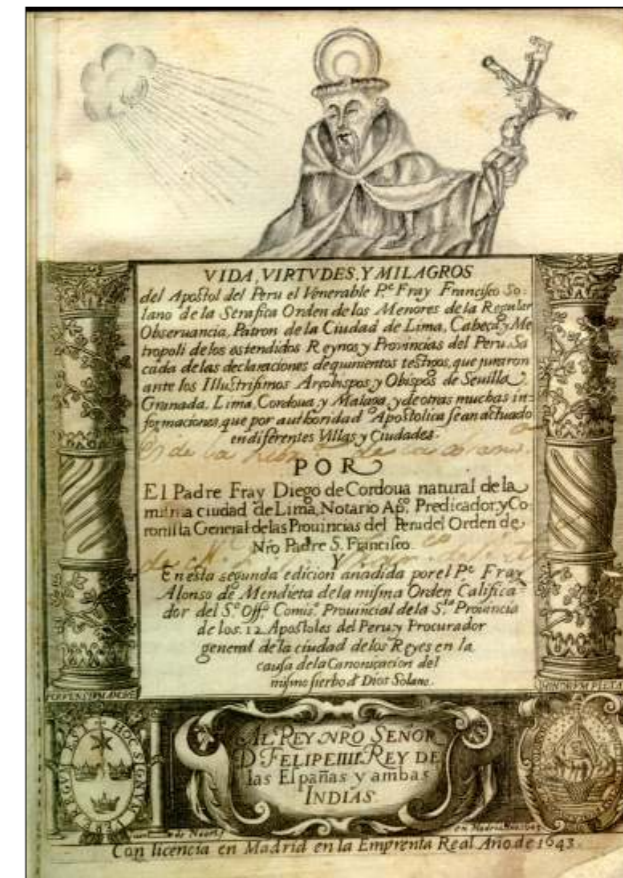 VIDA, VIRTVDES, Y MILAGROS
del Apostol del Peru el Venerable P.e Fray Francisco So-
lano de la Serafica Orden de los Menores de la Regular
Observancia, Patron de la Ciudad de Lima, Cabeça, y Me
tropoli de los estendidos Reynos y Provincias del Peru. Sa
cada de las declaraciones de quinientos testigos, que juraron
ante los Illustrisimos Arçobispos y Obispos de Sevilla,
Granada, Lima, Cordoua, y Malaga, y de otras muchas in-
formaciones, que por authoridad Apostolica se an actuado
en diferentes Villas y Ciudades.
POR
El Padre Fray Diego de Cordoua natural de la
misma ciudad de Lima, Notario Apº. Predicador, y Co
ronista General de las Prouincias del Peru del Orden de
Nrō Padre S. Francisco.
Y
En esta segunda edicion añadida por el P.e Fray
Alonso de Mendieta de la misma Orden Califica-
dor del S.º Off.º Comis.º Prouincial de la S.ta Prouincia
de los 12 Apostoles del Peru, y Procurador
general de la ciudad de los Reyes en la
causa de la Canonicacion del
mismo sierbo d Dios Solano.
HOC SIGNVM VERE REGVM EST
AL REY NRO SEÑOR
D. FELIPE IIII. REY DE
las Españas y ambas
INDIAS
de Noort f.
en Madrid
Con licencia en Madrid en la Emprenta Real Año de 1643